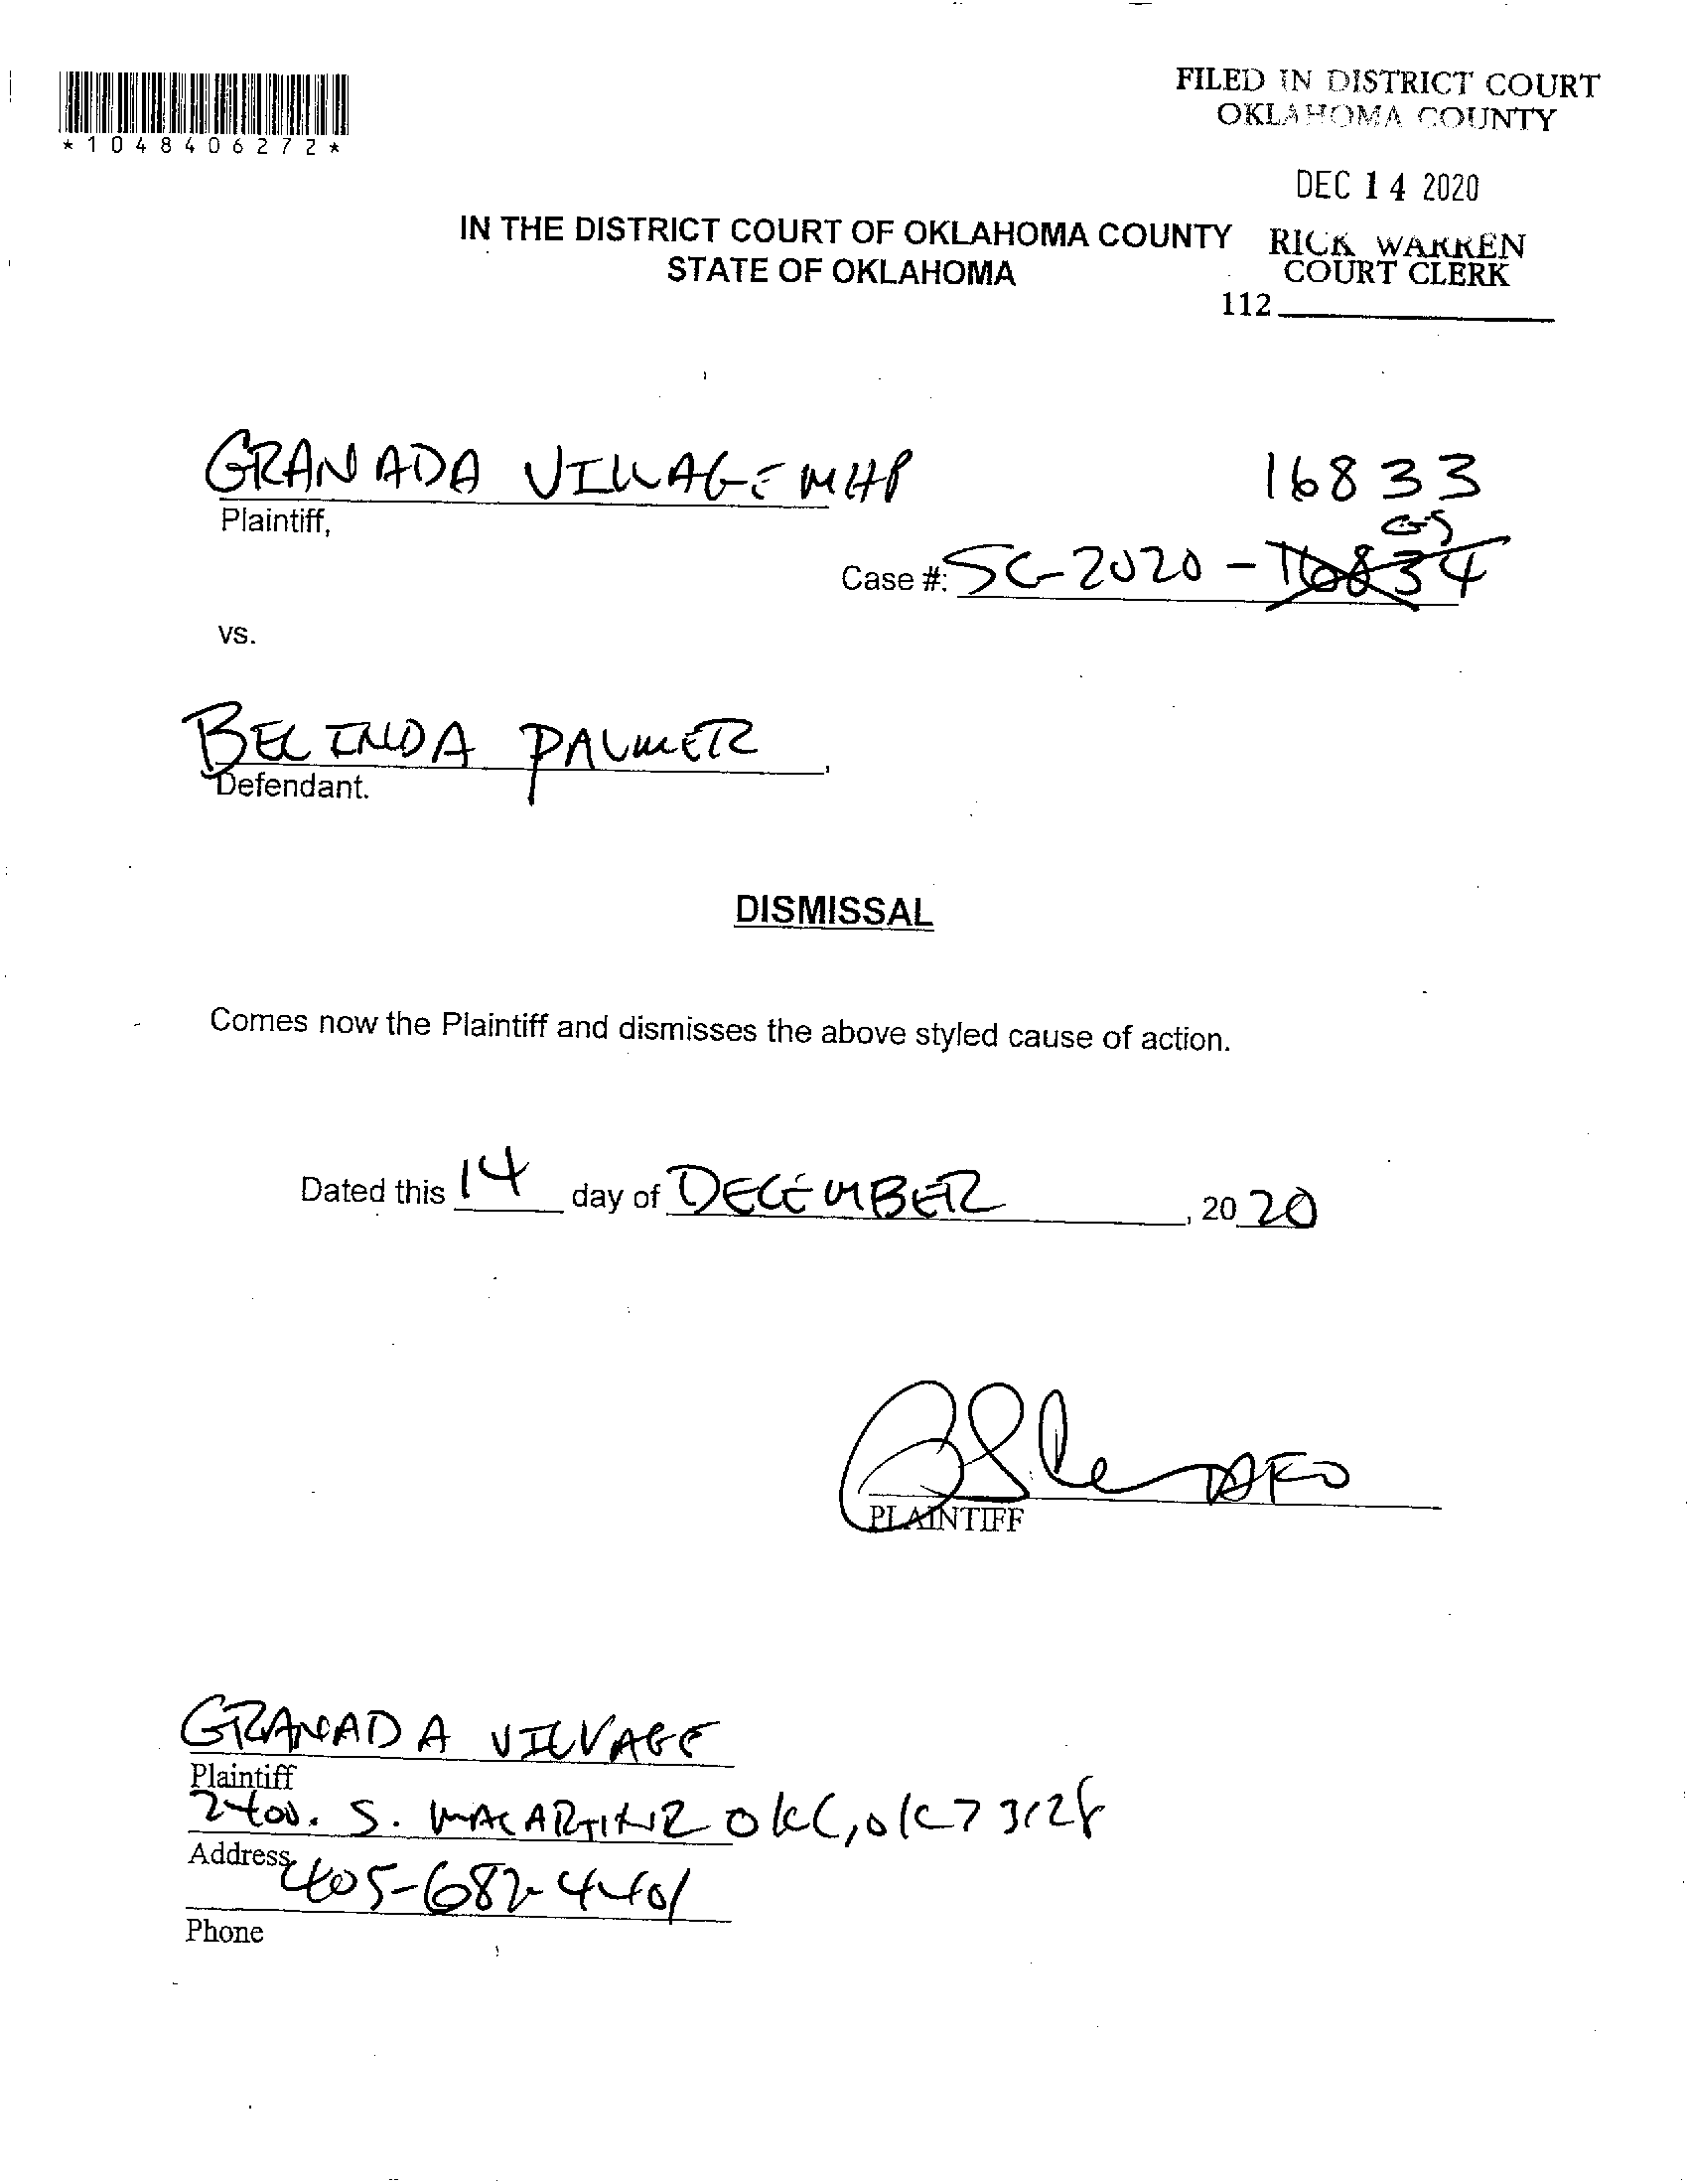 FILED IN DISTRICT COURT
OKLAHOMA COUNTY
*1048406272*
DEC 14 2020
IN THE DISTRICT COURT OF OKLAHOMA COUNTY
STATE OF OKLAHOMA
RICK WARREN
COURT CLERK
112
GRANADA VILLAGE MHP
Plaintiff,
16833
GS
Case #: SC-2020-16834
vs.
BELINDA PALMER,
Defendant.
DISMISSAL
Comes now the Plaintiff and dismisses the above styled cause of action.
Dated this 14 day of DECEMBER, 2020
PLAINTIFF
GRANADA VILLAGE
Plaintiff
2400. S. MACARTHUR OKC, OK 73128
Address
405-682-4401
Phone